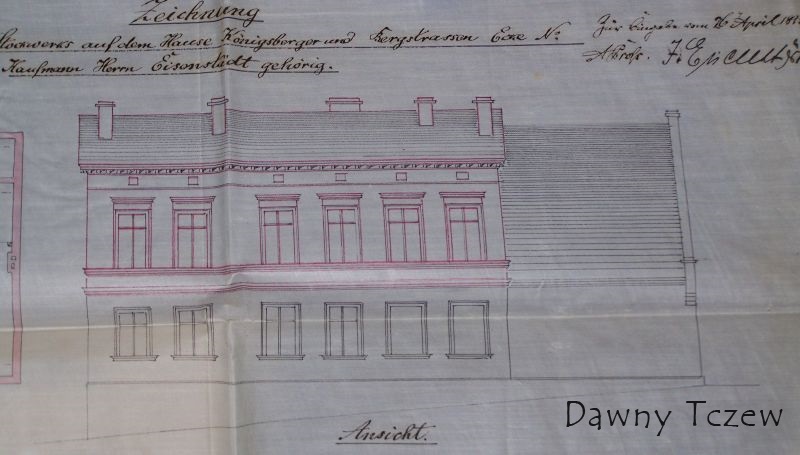 Zeichnung
Stockwerks auf dem Hause Königsberger und Bergstrassen Ecke No.
Kaufmann Herrn Eisenstädt gehörig.
Zur Eingabe vom 26 April
Ansicht.
Dawny Tczew